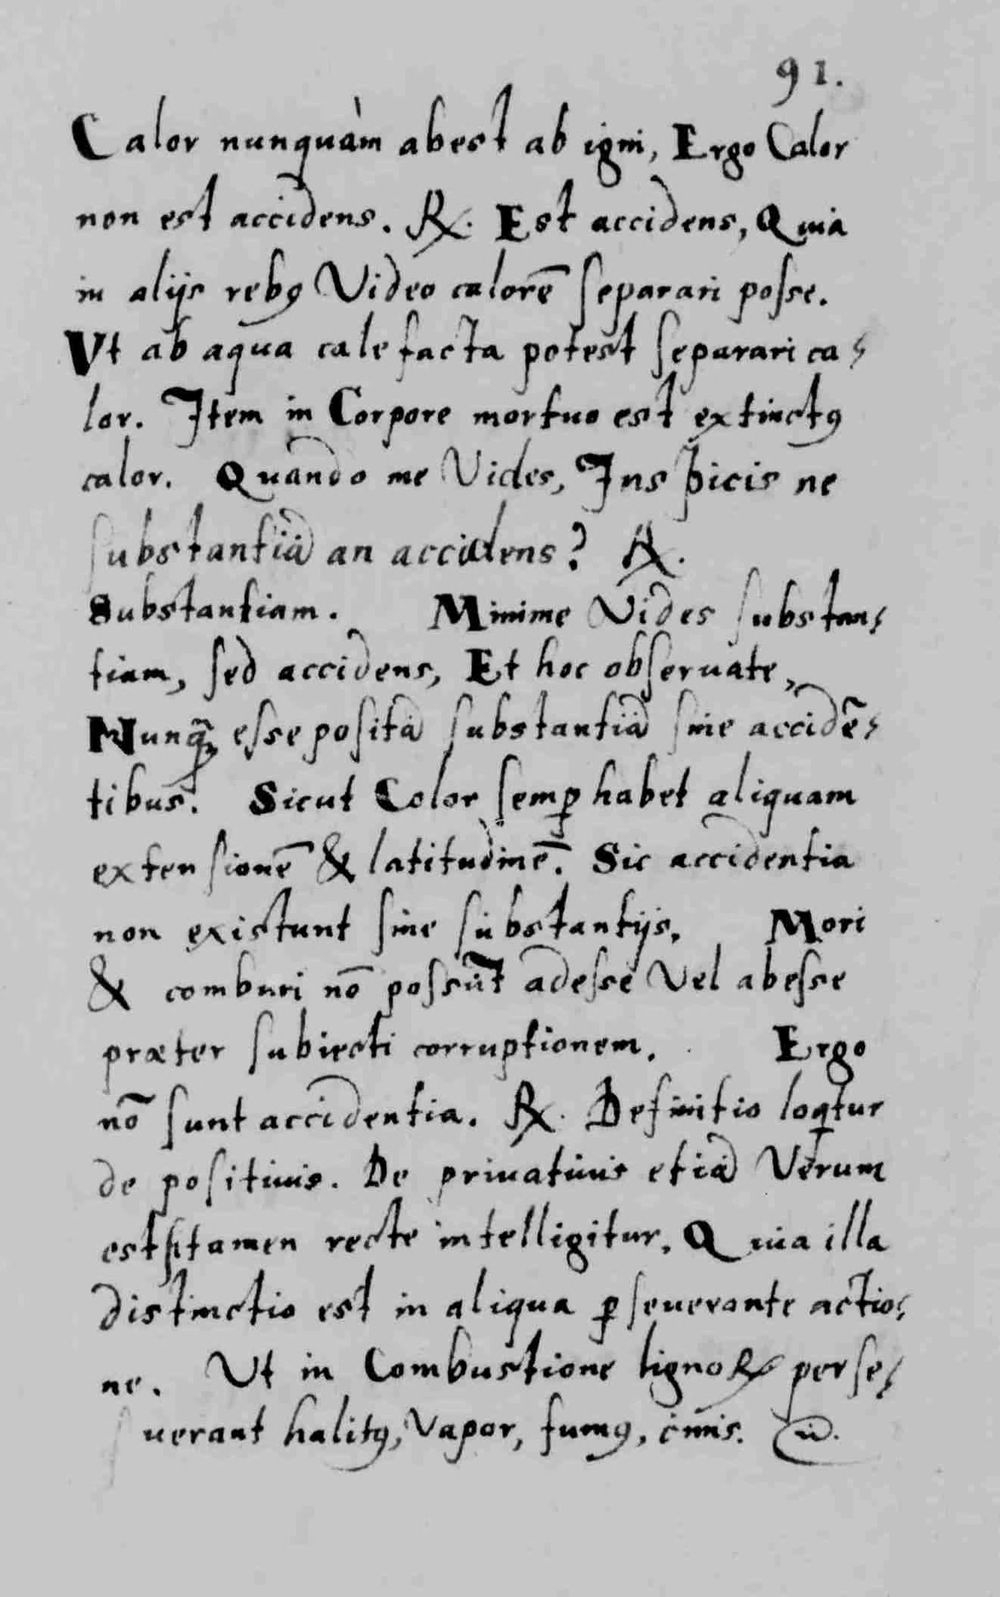 91.
Calor nunquàm abest ab igni, Ergo Calor
non est accidens. ℞. Est accidens, Quia
in alijs rebꝰ Video calorē ſeparari poſse.
Vt ab aqua calefacta potest ſeparari ca⸗
lor. Item in Corpore mortuo est extinctꝰ
calor. Quando me Vides, Inspicis ne
ſubstantiā an accidens? ℞.
Substantiam. Minime Vides ſubstan⸗
tiam, ſed accidens, Et hoc obſeruate,
Nunꝗ̃ esse poſitā ſubstantiā ſine accidē⸗
tibus. Sicut Color ſemꝑ habet aliquam
extenſionē & latitudinē. Sic accidentia
non existunt ſine ſubstantijs. Mori
& comburi nō poſsūt adeſse Vel abeſse
præter ſubiecti corruptionem. Ergo
nō ſunt accidentia. ℞. Definitio loꝗtur
de poſitiuis. De priuatiuis etiā Verum
est tamen recte intelligitur. Quia illa
distinctio est in aliqua ꝑſeuerante actio⸗
ne. Vt in Combustione lignoꝝ perſe⸗
uerant halitꝰ, Vapor, fumꝰ, cinis.